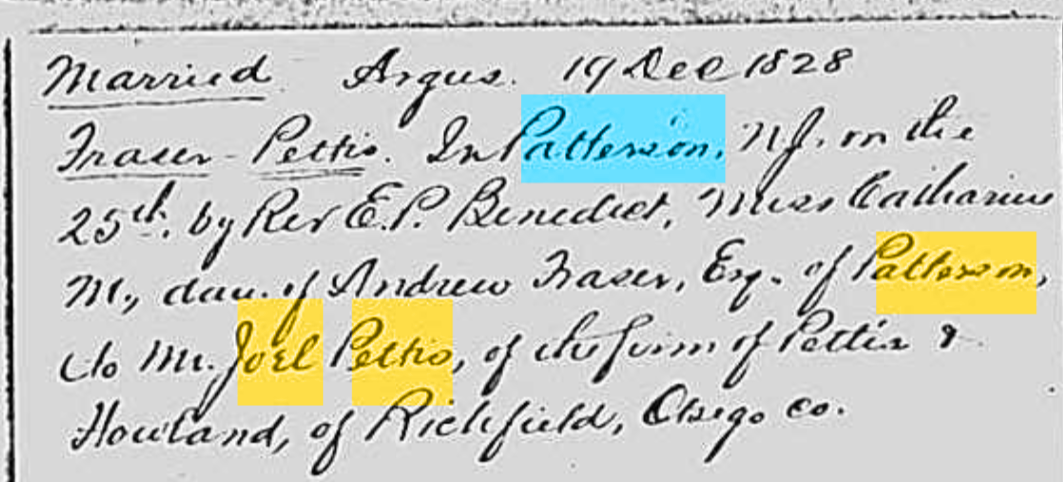 Married Argus. 19 Dec 1828
Fraser - Pettis. In Patterson, N.J. on the
25th. by Rev E.P. Benedict, Miss Catharine
M., dau. of Andrew Fraser, Esq. of Patterson,
to Mr. Joel Pettis, of the firm of Pettis &
Howland, of Richfield, Otsego co.